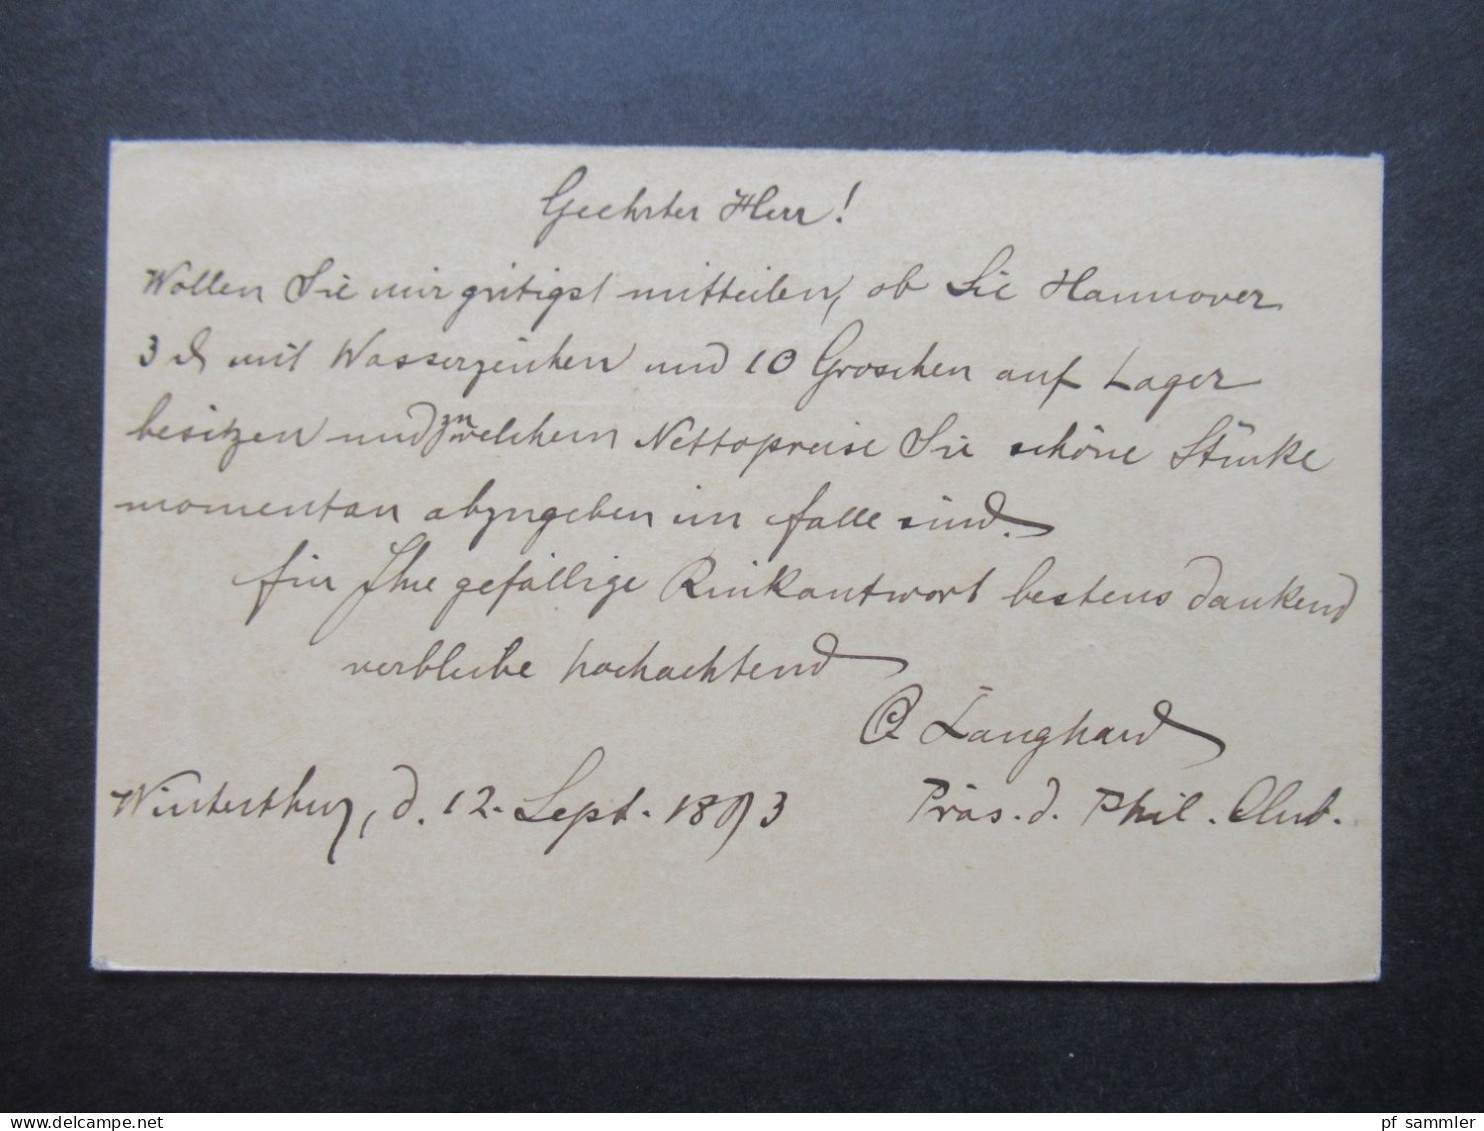 Geehrter Herr!
Wollen Sie mir gütigst mitteilen, ob Sie Hannover
3 ₰ mit Wasserzeichen und 10 Groschen auf Lager
besitzen und zu welchem Nettopreise Sie schöne Stücke
momentan abzugeben im falle sind.
für Ihre gefällige Rückantwort bestens dankend
verbleibe hochachtend
Langhard
Winterthur, d. 12. Sept. 1893 Präs. d. Phil. Club.
pf sammler